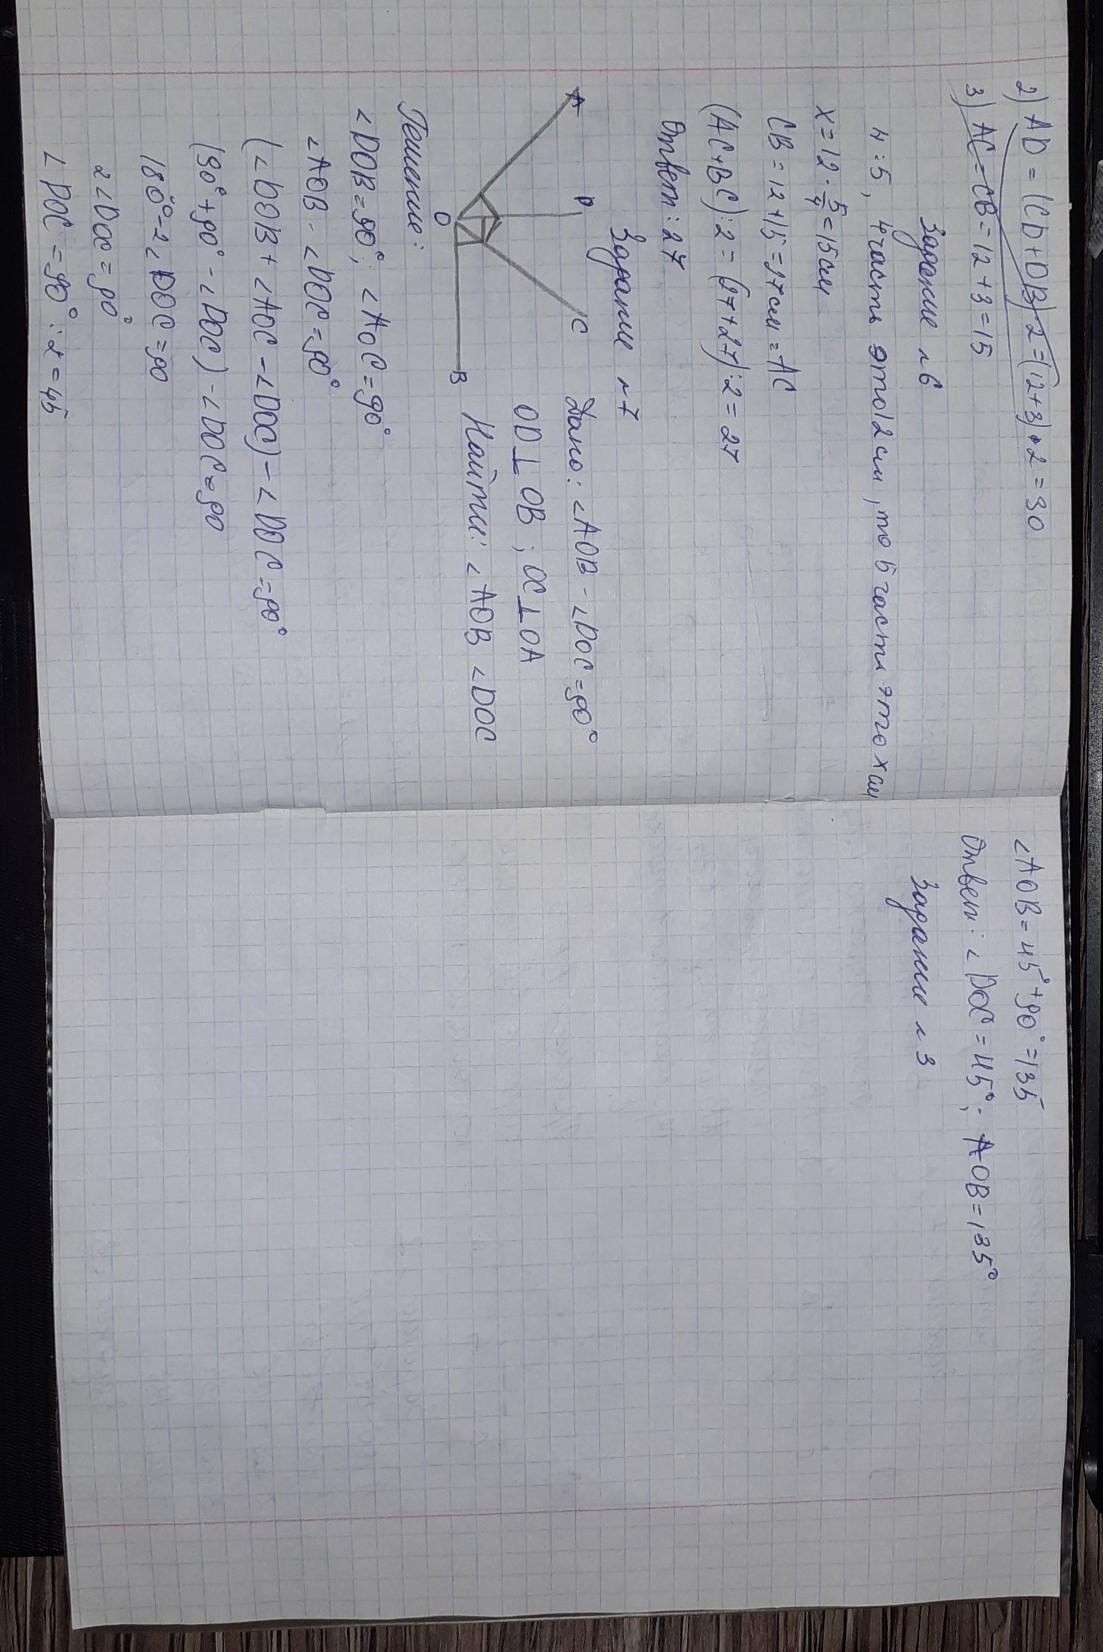 2) AD = (CD + DB) · 2 = (12+3) · 2 = 30
3) AC = CB = 12 + 3 = 15
Задание n6
4 : 5, 4 часть это 12 см, то 5 части это x см
x = 12 · 5/4 = 15 см
CB = 12 + 15 = 27 см = AC
(AC+BC) : 2 = (27+27) : 2 = 27
Ответ: 27
Задание n7
A
D
C
O
B
Дано: ∠AOB - ∠DOC = 90°
OD⊥OB ; OC⊥OA
Найти: ∠AOB ∠DOC
Решение:
∠DOB = 90°; ∠AOC = 90°
∠AOB - ∠DOC = 90°
(∠DOB + ∠AOC - ∠DOC) - ∠DOC = 90°
(90° + 90° - ∠DOC) - ∠DOC = 90
180° - 2∠DOC = 90
2∠DOC = 90°
∠DOC = 90° : 2 = 45
∠AOB = 45° + 90° = 135
Ответ: ∠DOC = 45°; AOB = 135°
Задание n3